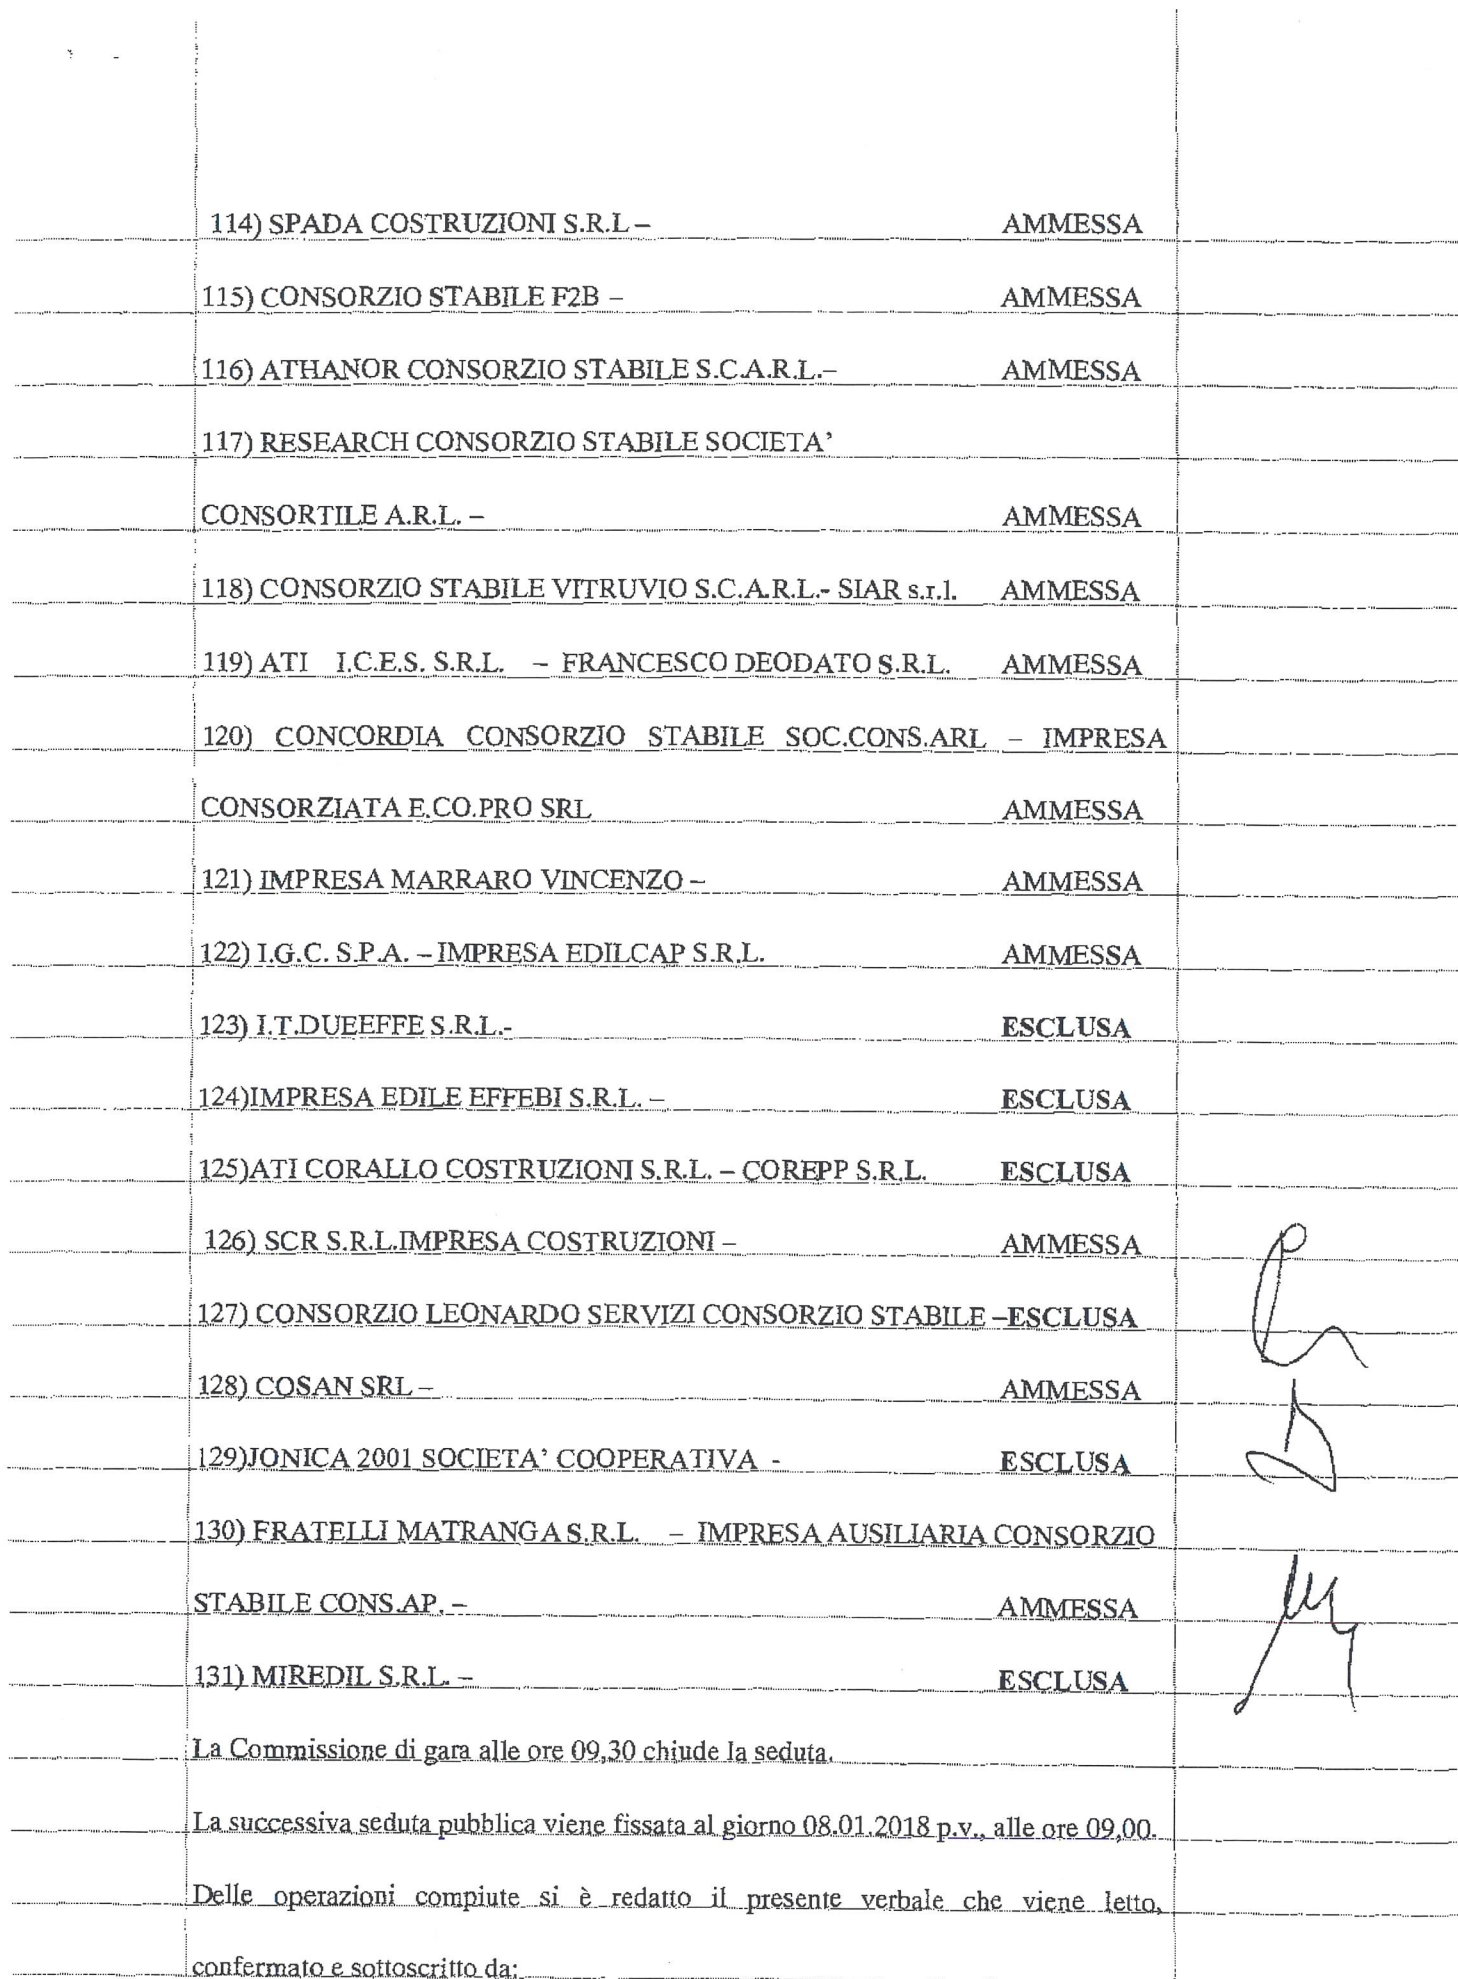 114) SPADA COSTRUZIONI S.R.L – AMMESSA
115) CONSORZIO STABILE F2B – AMMESSA
116) ATHANOR CONSORZIO STABILE S.C.A.R.L.– AMMESSA
117) RESEARCH CONSORZIO STABILE SOCIETA’
CONSORTILE A.R.L. – AMMESSA
118) CONSORZIO STABILE VITRUVIO S.C.A.R.L.- SIAR s.r.l. AMMESSA
119) ATI I.C.E.S. S.R.L. – FRANCESCO DEODATO S.R.L. AMMESSA
120) CONCORDIA CONSORZIO STABILE SOC.CONS.ARL – IMPRESA
CONSORZIATA E.CO.PRO SRL AMMESSA
121) IMPRESA MARRARO VINCENZO – AMMESSA
122) I.G.C. S.P.A. – IMPRESA EDILCAP S.R.L. AMMESSA
123) I.T.DUEEFFE S.R.L.- ESCLUSA
124)IMPRESA EDILE EFFEBI S.R.L. – ESCLUSA
125)ATI CORALLO COSTRUZIONI S.R.L. – COREPP S.R.L. ESCLUSA
126) SCR S.R.L.IMPRESA COSTRUZIONI – AMMESSA
127) CONSORZIO LEONARDO SERVIZI CONSORZIO STABILE –ESCLUSA
128) COSAN SRL – AMMESSA
129)JONICA 2001 SOCIETA’ COOPERATIVA - ESCLUSA
130) FRATELLI MATRANGA S.R.L. – IMPRESA AUSILIARIA CONSORZIO
STABILE CONS.AP. – AMMESSA
131) MIREDIL S.R.L. – ESCLUSA
La Commissione di gara alle ore 09,30 chiude la seduta.
La successiva seduta pubblica viene fissata al giorno 08.01.2018 p.v., alle ore 09,00.
Delle operazioni compiute si è redatto il presente verbale che viene letto,
confermato e sottoscritto da: